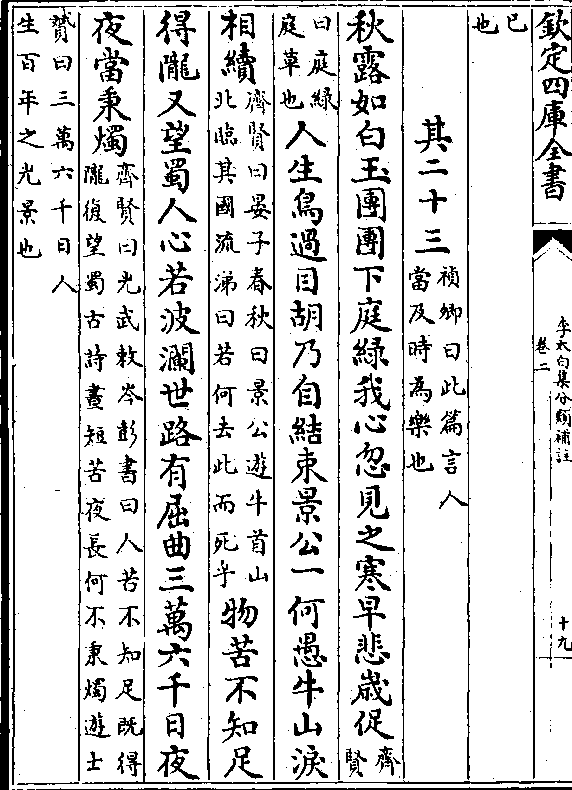 欽定四庫全書
李太白集分類補註
卷二
十九
已
也
其二十三
禎卿曰此篇言人
當及時為樂也
秋露如白玉團團下庭綠我心忽見之寒早悲歲促
齊賢
曰庭綠
庭草也
人生鳥過目胡乃自結束景公一何愚牛山淚
相續
齊賢曰晏子春秋曰景公遊牛首山
北臨其國流涕曰若何去此而死乎
物苦不知足
得隴又望蜀人心若波瀾世路有屈曲三萬六千日夜
夜當秉燭
齊賢曰光武敕岑彭書曰人苦不知足既得
隴復望蜀古詩晝短苦夜長何不秉燭遊士
贇曰三萬六千日人
生百年之光景也